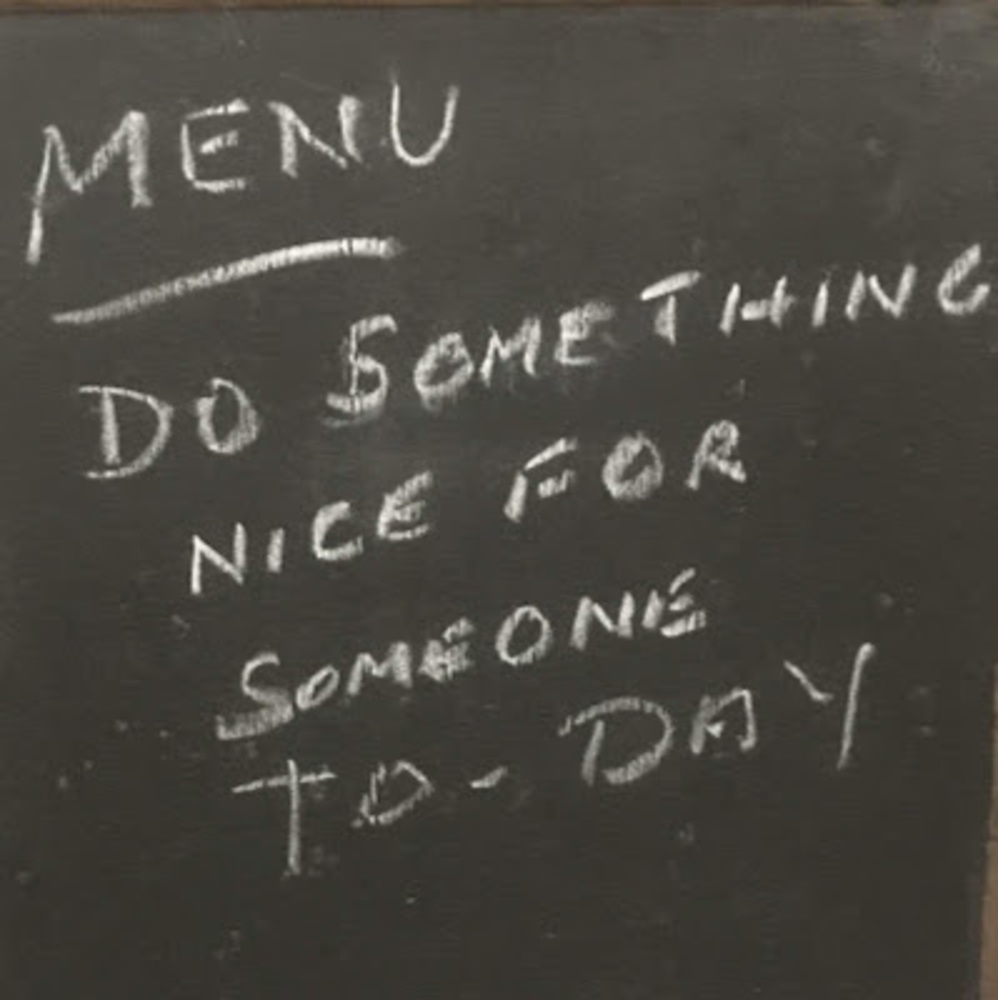 MENU
DO SOMETHING
NICE FOR
SOMEONE
TO-DAY